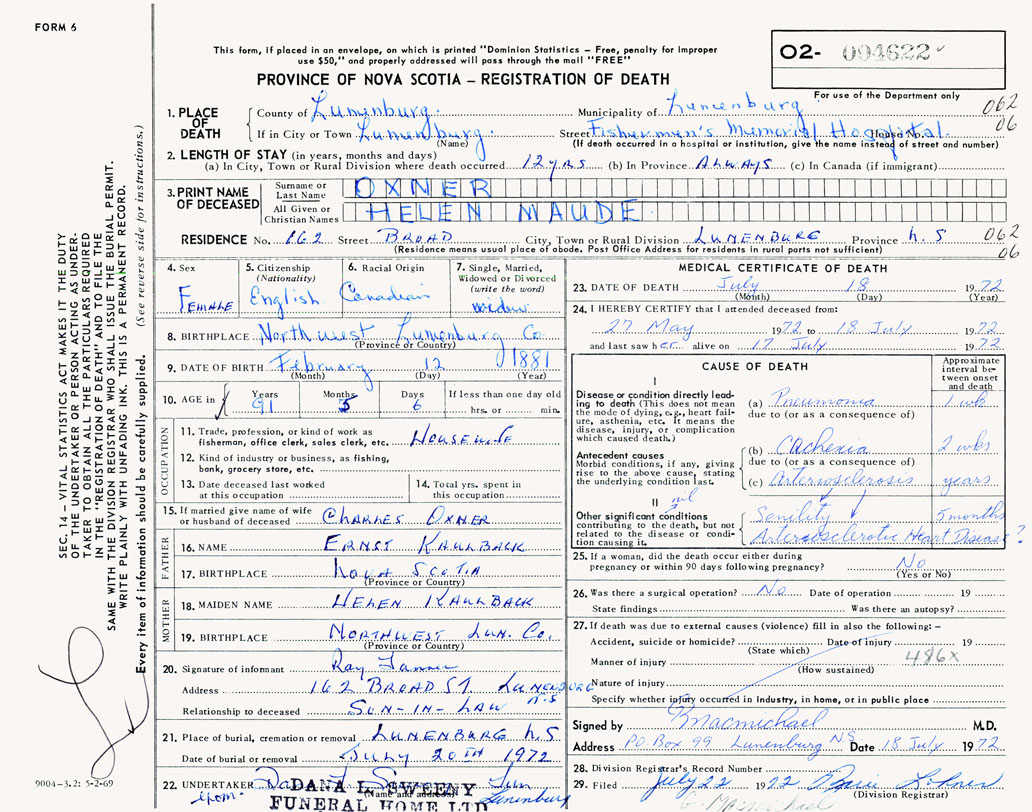 FORM 6
This form, if placed in an envelope, on which is printed "Dominion Statistics – Free, penalty for improper
use $50," and properly addressed will pass through the mail "FREE"
PROVINCE OF NOVA SCOTIA – REGISTRATION OF DEATH
02- 004622
For use of the Department only
062
06
1. PLACE OF DEATH
County of Lunenburg. Municipality of Lunenburg
If in City or Town Lunenburg. Street Fishermen's Memorial Hospital. House No.
(Name) (If death occurred in a hospital or institution, give the name instead of street and number)
2. LENGTH OF STAY (in years, months and days)
(a) In City, Town or Rural Division where death occurred 12 yrs (b) In Province Always (c) In Canada (if immigrant)
3. PRINT NAME OF DECEASED
Surname or Last Name OXNER
All Given or Christian Names HELEN MAUDE
RESIDENCE No. 162 Street BROAD City, Town or Rural Division LUNENBURG Province N.S 062
(Residence means usual place of abode. Post Office Address for residents in rural parts not sufficient) 06
4. Sex Female
5. Citizenship (Nationality) English
6. Racial Origin Canadian
7. Single, Married, Widowed or Divorced (write the word) widow
8. BIRTHPLACE Northwest Lunenburg Co
(Province or Country)
9. DATE OF BIRTH February 12 1881
(Month) (Day) (Year)
10. AGE in Years 91 Months 5 Days 6 If less than one day old hrs. or min.
OCCUPATION
11. Trade, profession or kind of work as fisherman, office clerk, sales clerk, etc. Housewife
12. Kind of industry or business, as fishing, bank, grocery store, etc.
13. Date deceased last worked at this occupation
14. Total yrs. spent in this occupation
15. If married give name of wife or husband of deceased Charles Oxner
FATHER
16. NAME Ernst Kaulback
17. BIRTHPLACE Nova Scotia
(Province or Country)
MOTHER
18. MAIDEN NAME Helen Kaulback
19. BIRTHPLACE Northwest Lun. Co.
(Province or Country)
20. Signature of informant Ray Tanner
Address 162 Broad St. Lunenburg N.S
Relationship to deceased Son-in-Law
21. Place of burial, cremation or removal Lunenburg N.S
Date of burial or removal July 20th 1972
22. UNDERTAKER
(Name and address) Lunenburg
DANA L. SWEENY
FUNERAL HOME LTD
MEDICAL CERTIFICATE OF DEATH
23. DATE OF DEATH July 18 1972
(Month) (Day) (Year)
24. I HEREBY CERTIFY that I attended deceased from:
27 May 1972 to 18 July 1972
and last saw her alive on 17 July 1972
CAUSE OF DEATH
Approximate interval between onset and death
I
Disease or condition directly leading to death (This does not mean the mode of dying, e.g., heart failure, asthenia, etc. it means the disease, injury, or complication which caused death.)
(a) Pneumonia 1 wk
due to (or as a consequence of)
Antecedent causes
Morbid conditions, if any, giving rise to the above cause, stating the underlying condition last.
(b) Cachexia 2 wks
due to (or as a consequence of)
(c) Arteriosclerosis years
II nil
Other significant conditions contributing to the death, but not related to the disease or condition causing it.
Senility 5 months
Arteriosclerotic Heart Disease ?
25. If a woman, did the death occur either during pregnancy or within 90 days following pregnancy? No
(Yes or No)
26. Was there a surgical operation? No Date of operation 19
State findings Was there an autopsy?
27. If death was due to external causes (violence) fill in also the following: –
Accident, suicide or homicide? Date of injury 19
(State which)
Manner of injury 486X
(How sustained)
Nature of injury
Specify whether injury occurred in industry, in home, or in public place
Signed by Macmichael M.D.
Address PO Box 99 Lunenburg NS Date 18 July 1972
28. Division Registrar's Record Number
29. Filed July 22 1972
(Division Registrar)
SEC. 14 – VITAL STATISTICS ACT MAKES IT THE DUTY
OF THE UNDERTAKER OR PERSON ACTING AS UNDER-
TAKER TO OBTAIN ALL THE PARTICULARS REQUIRED
IN THE "REGISTRATION OF DEATH" AND TO FILE THE
SAME WITH THE DIVISION REGISTRAR WHO SHALL ISSUE THE BURIAL PERMIT.
WRITE PLAINLY WITH UNFADING INK. THIS IS A PERMANENT RECORD.
Every item of information should be carefully supplied. (See reverse side for instructions.)
9004–3.2: 5-2-69